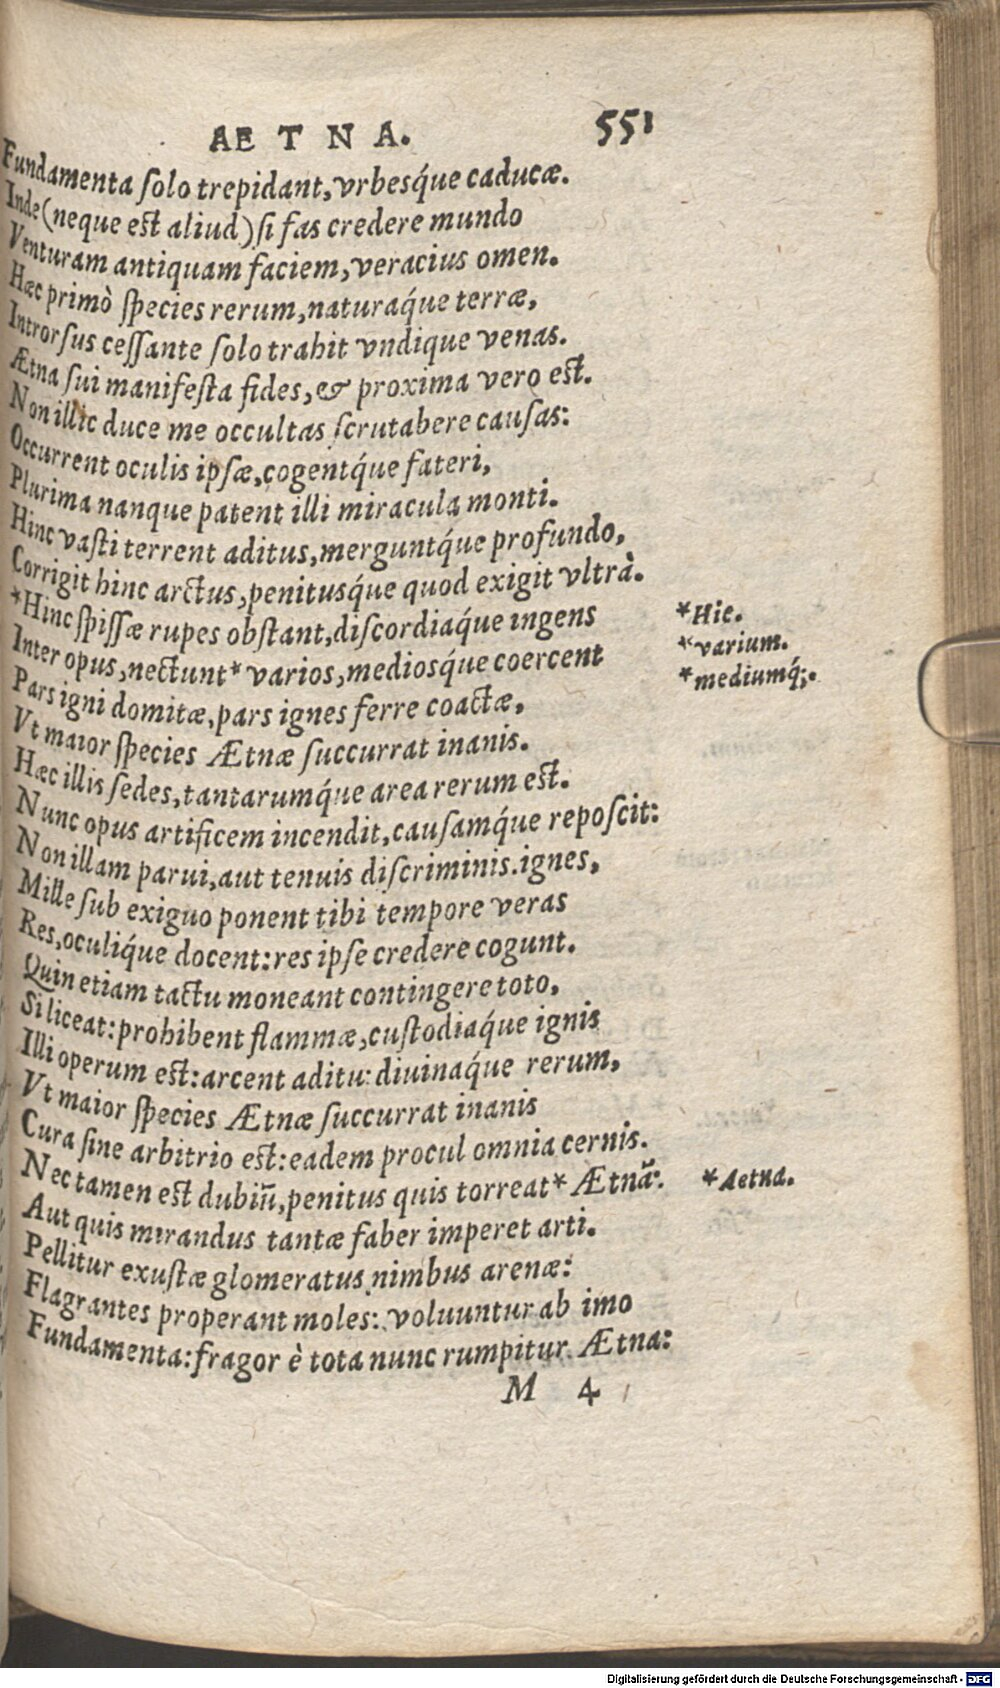 AETNA. 551
Fundamenta solo trepidant, vrbesq́ue caducæ.
Inde (neque est aliud) si fas credere mundo
Venturam antiquam faciem, veracius omen.
Hæc primò species rerum, naturaq́ue terræ,
Introrsus cessante solo trahit vndique venas.
Ætna sui manifesta fides, & proxima vero est.
Non illic duce me occultas scrutabere causas:
Occurrent oculis ipsæ, cogentq́ue fateri,
Plurima nanque patent illi miracula monti.
Hinc vasti terrent aditus, merguntq́ue profundo,
Corrigit hinc arctus, penitusq́ue quod exigit vltrà.
*Hinc spissæ rupes obstant, discordiaq́ue ingens *Hic.
Inter opus, nectunt* varios, mediosq́ue coercent *varium.
*mediumq́;.
Pars igni domitæ, pars ignes ferre coactæ,
Vt maior species Ætnæ succurrat inanis.
Hæc illis sedes, tantarumq́ue area rerum est.
Nunc opus artificem incendit, causamq́ue reposcit:
Non illam parui, aut tenuis discriminis.ignes,
Mille sub exiguo ponent tibi tempore veras
Res, oculiq́ue docent: res ipse credere cogunt.
Quin etiam tactu moneant contingere toto,
Si liceat: prohibent flammæ, custodiaq́ue ignis
Illi operum est: arcent aditu: diuinaq́ue rerum,
Vt maior species Ætnæ succurrat inanis
Cura sine arbitrio est: eadem procul omnia cernis.
Nec tamen est dubiũ, penitus quis torreat* Ætnã: *Aetna.
Aut quis mirandus tantæ faber imperet arti.
Pellitur exustæ glomeratus nimbus arenæ:
Flagrantes properant moles: voluuntur ab imo
Fundamenta: fragor è tota nunc rumpitur Ætna:
M 4
Digitalisierung gefördert durch die Deutsche Forschungsgemeinschaft - DFG